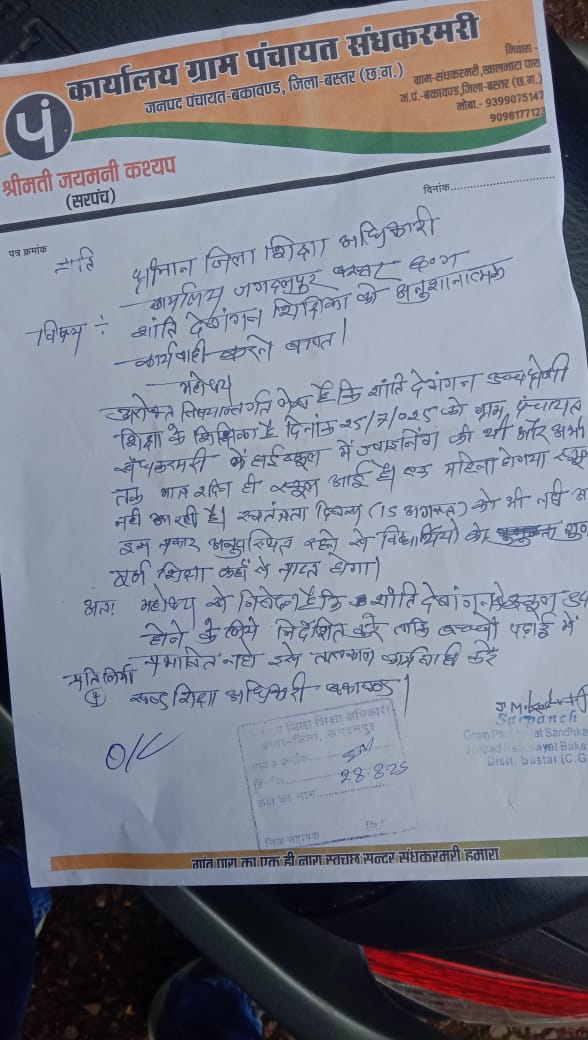 कार्यालय ग्राम पंचायत संधकरमरी
जनपद पंचायत-बकावण्ड, जिला-बस्तर (छ.ग.)
निवास -
ग्राम-संधकरमरी, खालपारा पारा
ज.पं.-बकावण्ड, जिला-बस्तर (छ.ग.)
मोबा.- 9399075147
9098177123
पं
श्रीमती जयमनी कश्यप
(सरपंच)
दिनांक
पत्र क्रमांक
प्रति
श्रीमान जिला शिक्षा अधिकारी
कार्यालय जगदलपुर बस्तर छ०ग
विषय :
शांति देवांगन शिक्षिका को अनुशानात्मक
कार्यवाही करने बाबत।
महोदय
उपरोक्त विषयान्तर्गत लेख है कि शांति देवांगन उच्च श्रेणी
शिक्षा के शिक्षिका है दिनांक 25/7/025 को ग्राम पंचायत
संधकरमरी के हाई स्कूल में ज्वाइनिंग की थी और अभी
तक मात्र ही स्कूल आई है। एक महिना होगया स्कूल
नही आ रही है। स्वतंत्रता दिवस (15 अगस्त) को भी नही
इस प्रकार अनुपस्थित रहने से विद्यार्थियो को
पूर्ण शिक्षा कहाँ से प्राप्त होगा।
अतः महोदय से निवेदन है कि शांति देवांगन को स्कूल
होने के लिये निर्देशित करे ताकि बच्चों पढाई में
प्रभावित नहो इसे तत्काल कार्यवाही करें
प्रतिलिपी
खण्ड शिक्षा अधिकारी बकावण्ड।
O/C
Sarpanch
Gram Panchayat Sandhka
Janpad Panchayat Baka
Distt. Bastar (C.G
जिला शिक्षा अधिकारी
बस्तर-जिला, जगदलपुर
28.8.25
कक्ष का नाम
निज सहायक
गांव पारा का एक ही नारा स्वच्छ सुन्दर संधकरमरी हमारा